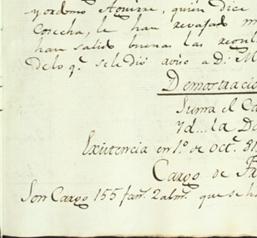 y ordono Aguirre, quien Dice
Cosecha, le han revajad
han salido buena las
delo q.e se le dio aviso a D.n M
Demostracio
Suma el Ca
Yd... la Da
Existencia en 1.o de oct.e 51
Cargo de Fa
Son Cargo 155 fan.s 2 alm.s que se h